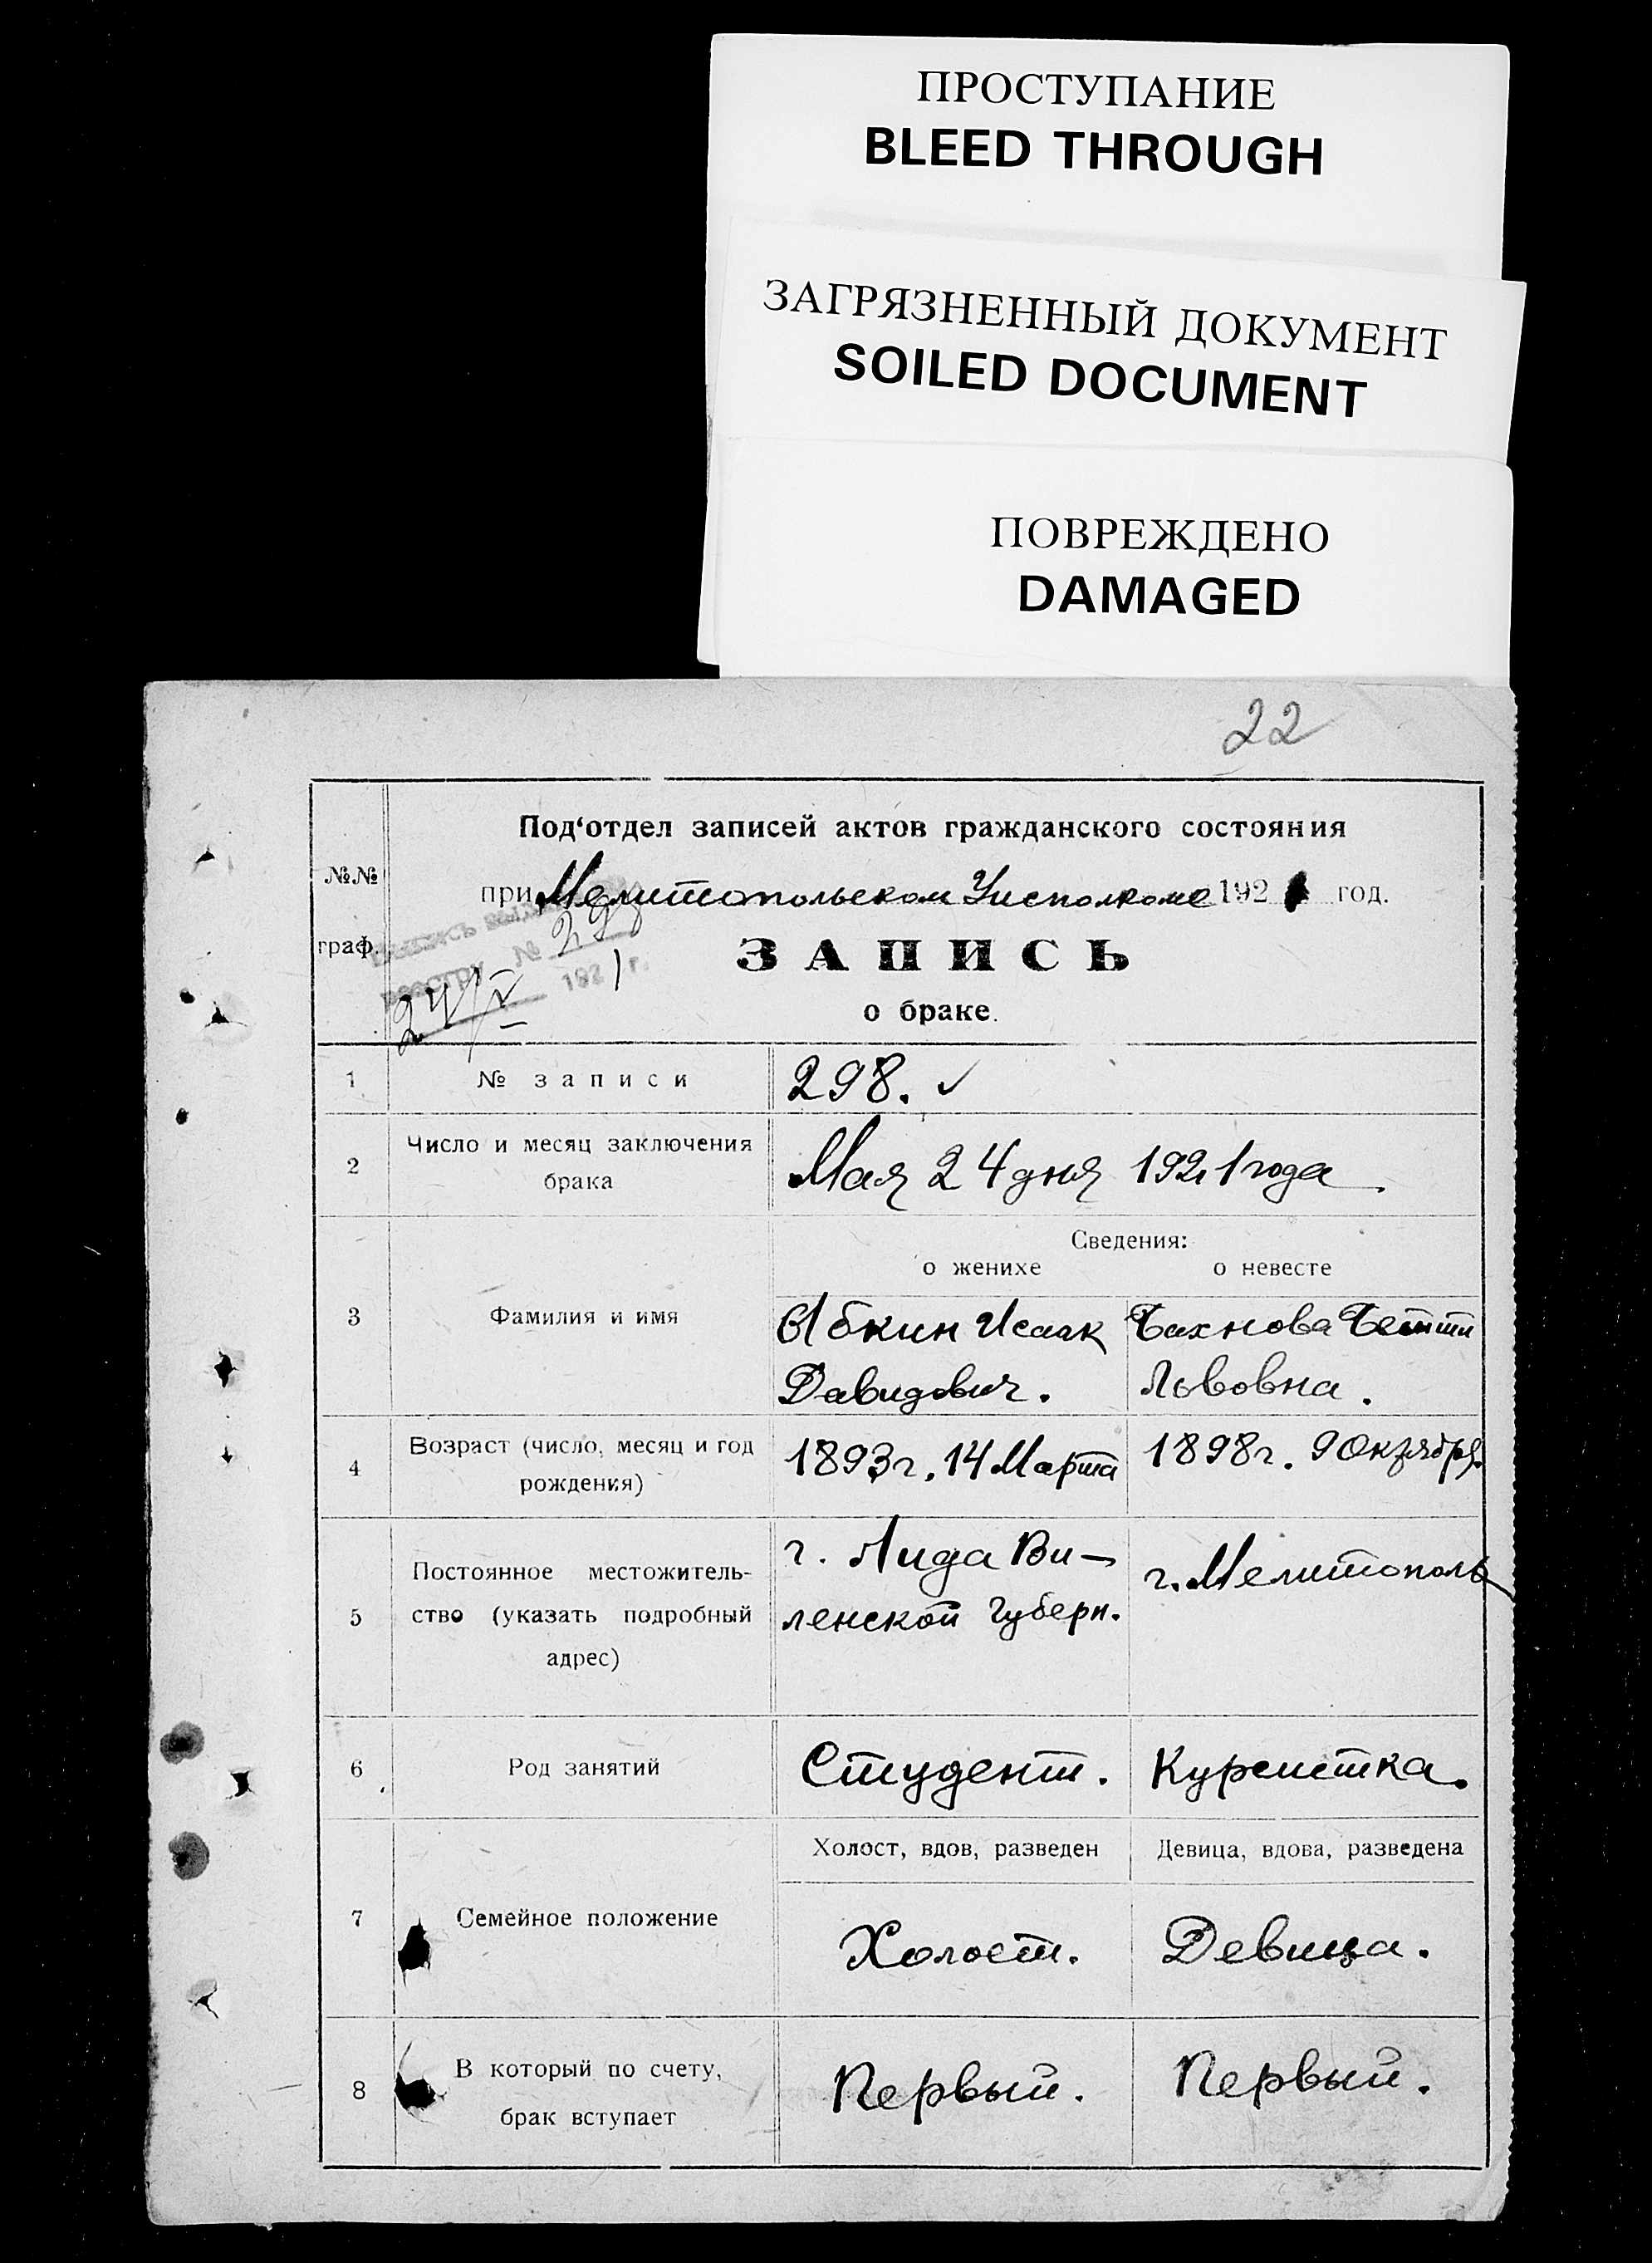 ПРОСТУПАНИЕ
BLEED THROUGH
ЗАГРЯЗНЕННЫЙ ДОКУМЕНТ
SOILED DOCUMENT
ПОВРЕЖДЕНО
DAMAGED
22
№№
граф.
Под‘отдел записей актов гражданского состояния
при Мелитопольском Уисполкоме 1921 год.
реестру № 298
24/V 1921 г.
ЗАПИСЬ
о браке.
1 № записи 298. ✓
2 Число и месяц заключения
брака
Мая 24 дня 1921 года.
Сведения:
о женихе о невесте
3 Фамилия и имя
Абкин Исаак
Давидович.
Бахнова Бетти
Львовна.
4 Возраст (число, месяц и год
рождения)
1893 г. 14 Марта
1898 г. 9 Октября.
5 Постоянное местожитель-
ство (указать подробный
адрес)
г. Лида Ви-
ленской Губерн.
г. Мелитополь
6 Род занятий
Студент. Курсистка.
7 Семейное положение
Холост, вдов, разведен Девица, вдова, разведена
Холост. Девица.
8 В который по счету,
брак вступает
Первый. Первый.